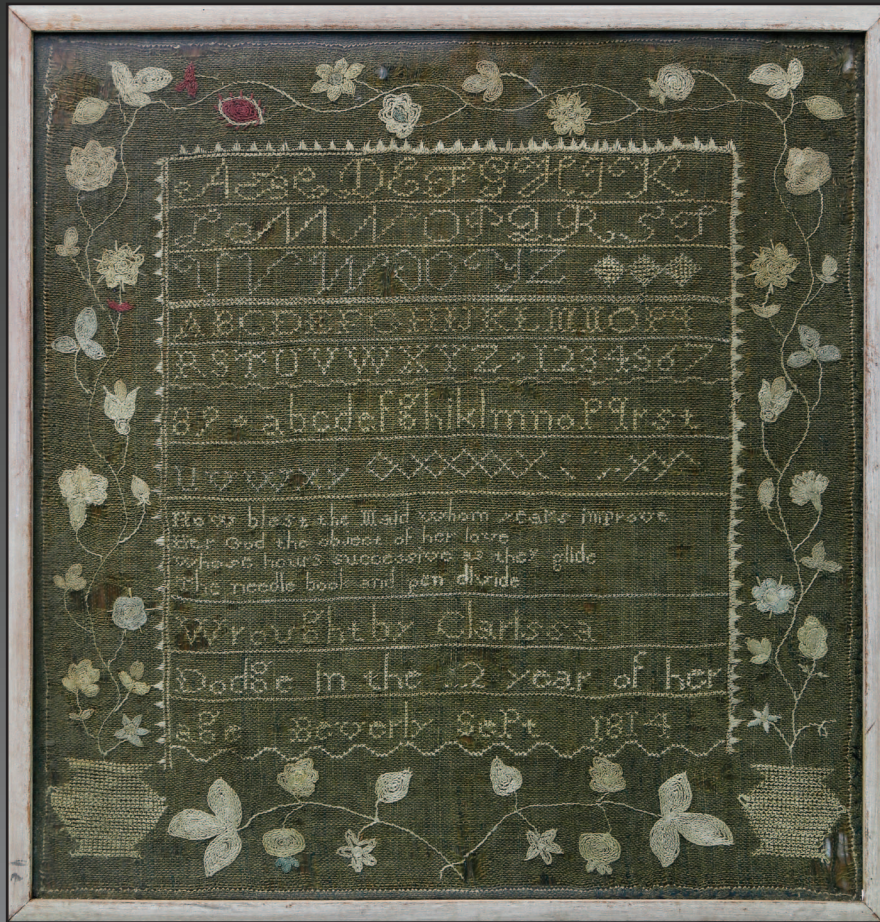 A B C D E F G H I K
L M N O P Q R S T
U V W X Y Z
A B C D E F G H IJ K L M N O P Q
R S T U V W X Y Z 1 2 3 4 5 6 7
8 9 a b c d e f g h i k l m n o p q r s t
u v w x y
How blest the Maid whom years improve
Her God the object of her love
Whose hours successive as they glide
The needle book and pen divide
Wrought by Clarissa
Dodge in the 12 year of her
age Beverly Sept 1814